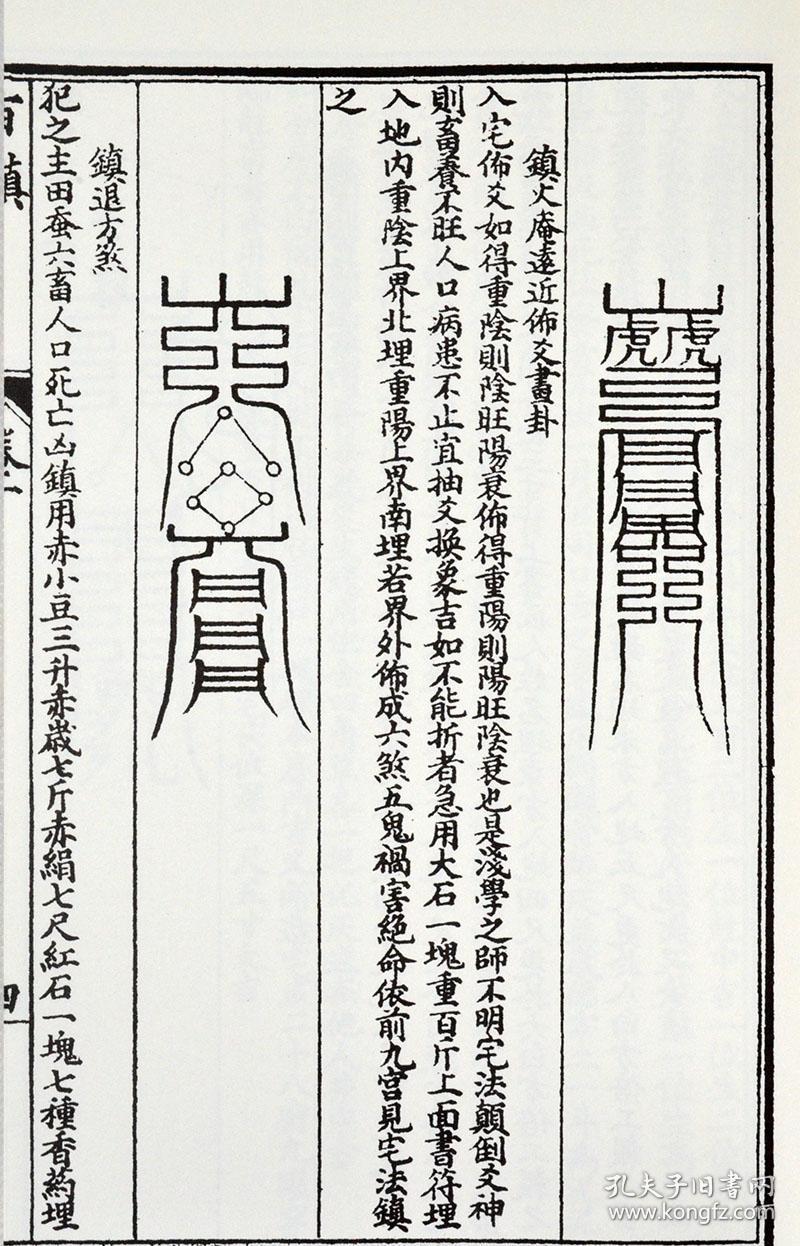 鎮火庵遠近佈爻畫卦
入宅佈爻如得重陰則陰旺陽衰佈得重陽則陽旺陰衰也是淺學之師不明宅法顛倒爻神
則畜養不旺人口病患不止宜抽爻換象吉如不能折者急用大石一塊重百斤上面書符埋
入地內重陰上界北埋重陽上界南埋若界外佈成六煞五鬼禍害絕命依前九宮見宅法鎮
之
鎮退方煞
犯之主田蚕六畜人口死亡凶鎮用赤小豆三升赤歲七斤赤絹七尺紅石一塊七種香葯埋
四
孔夫子旧書网
www.kongfz.com